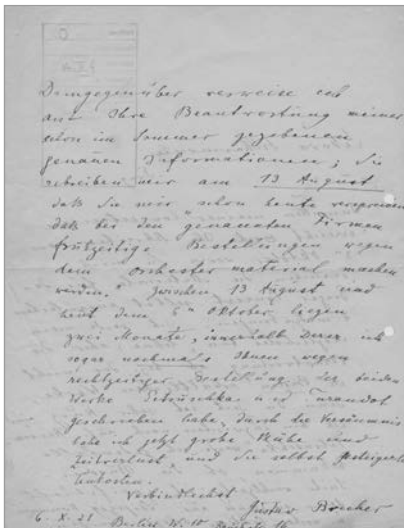 Demgegenüber verweise ich
auf Ihre Beantwortung meiner
schon im Sommer gegebenen
genauen Informationen; Sie
schreiben mir am 13 August
daß Sie mir "schon heute versprechen
daß bei den genannten Firmen
frühzeitige Bestellungen wegen
dem Orchestermaterial machen
werden." Zwischen 13 August und
heut dem 6ten Oktober liegen
zwei Monate, innerhalb derer ich
sogar nochmals Ihnen wegen
rechtzeitiger Bestellung der beiden
Werke Petruschka und Turandot
geschrieben habe, durch die Versäumnis
habe ich jetzt grobe Mühe und
Zeitverlust, und Sie selbst gesteigerte
Unkosten.
Verbindlichst
Gustav Brecher
6. X. 21 Berlin W. 10